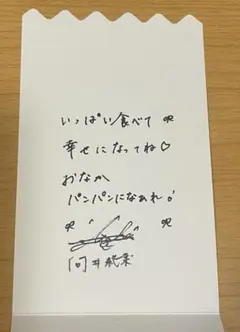 いっぱい食べて
幸せになってね♡
おなか
パンパンになあれ！
向井純葉